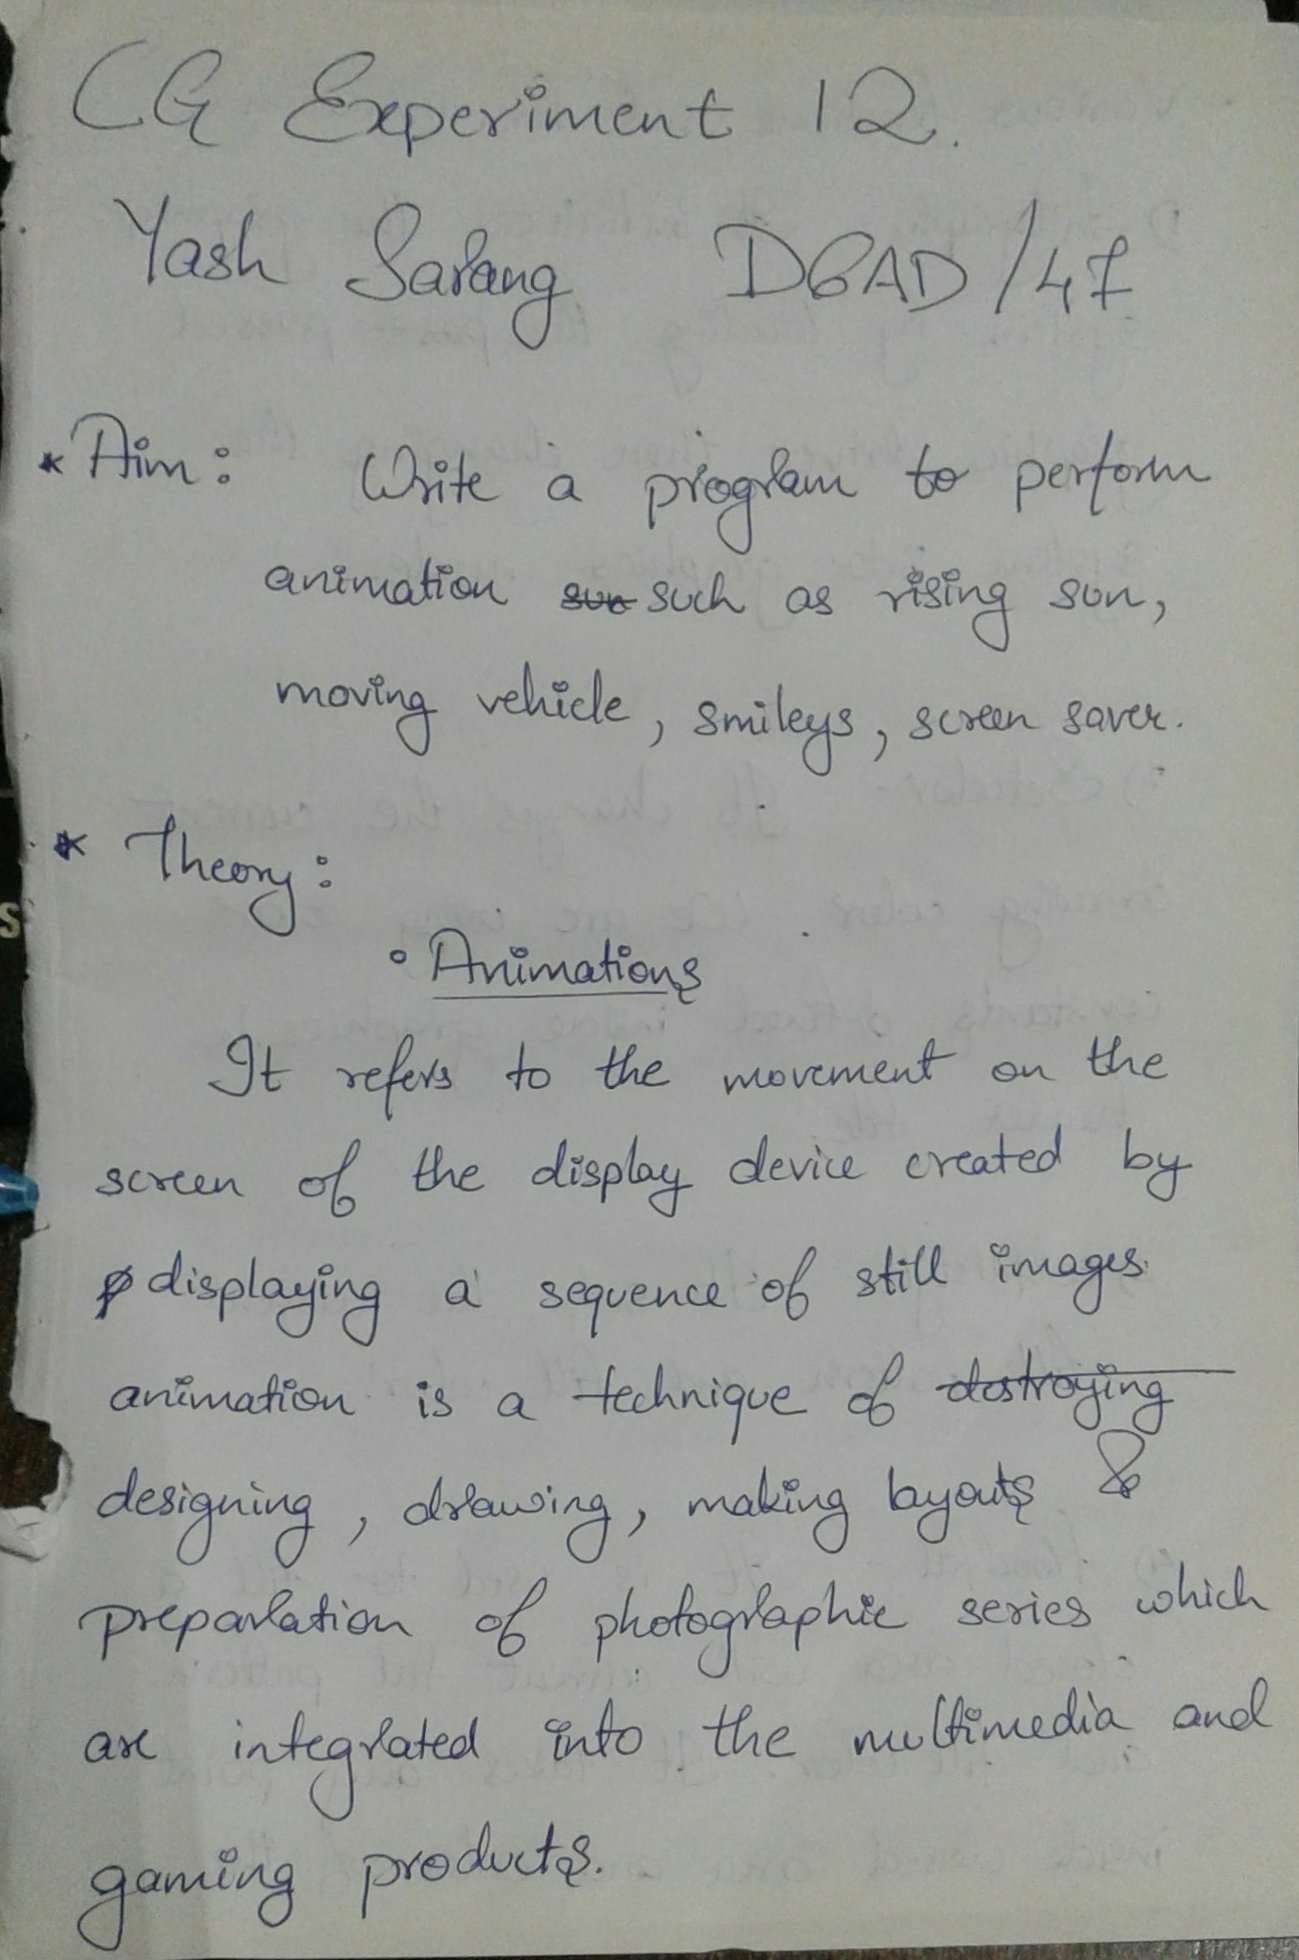 CG Experiment 12.
Yash Sarang D6AD/47
* Aim: Write a program to perform
animation such as rising sun,
moving vehicle, smileys, screen saver.
* Theory:
° Animations
It refers to the movement on the
screen of the display device created by
displaying a sequence of still images.
animation is a technique of destroying
designing, drawing, making layouts &
preparation of photographic series which
are integrated into the multimedia and
gaming products.